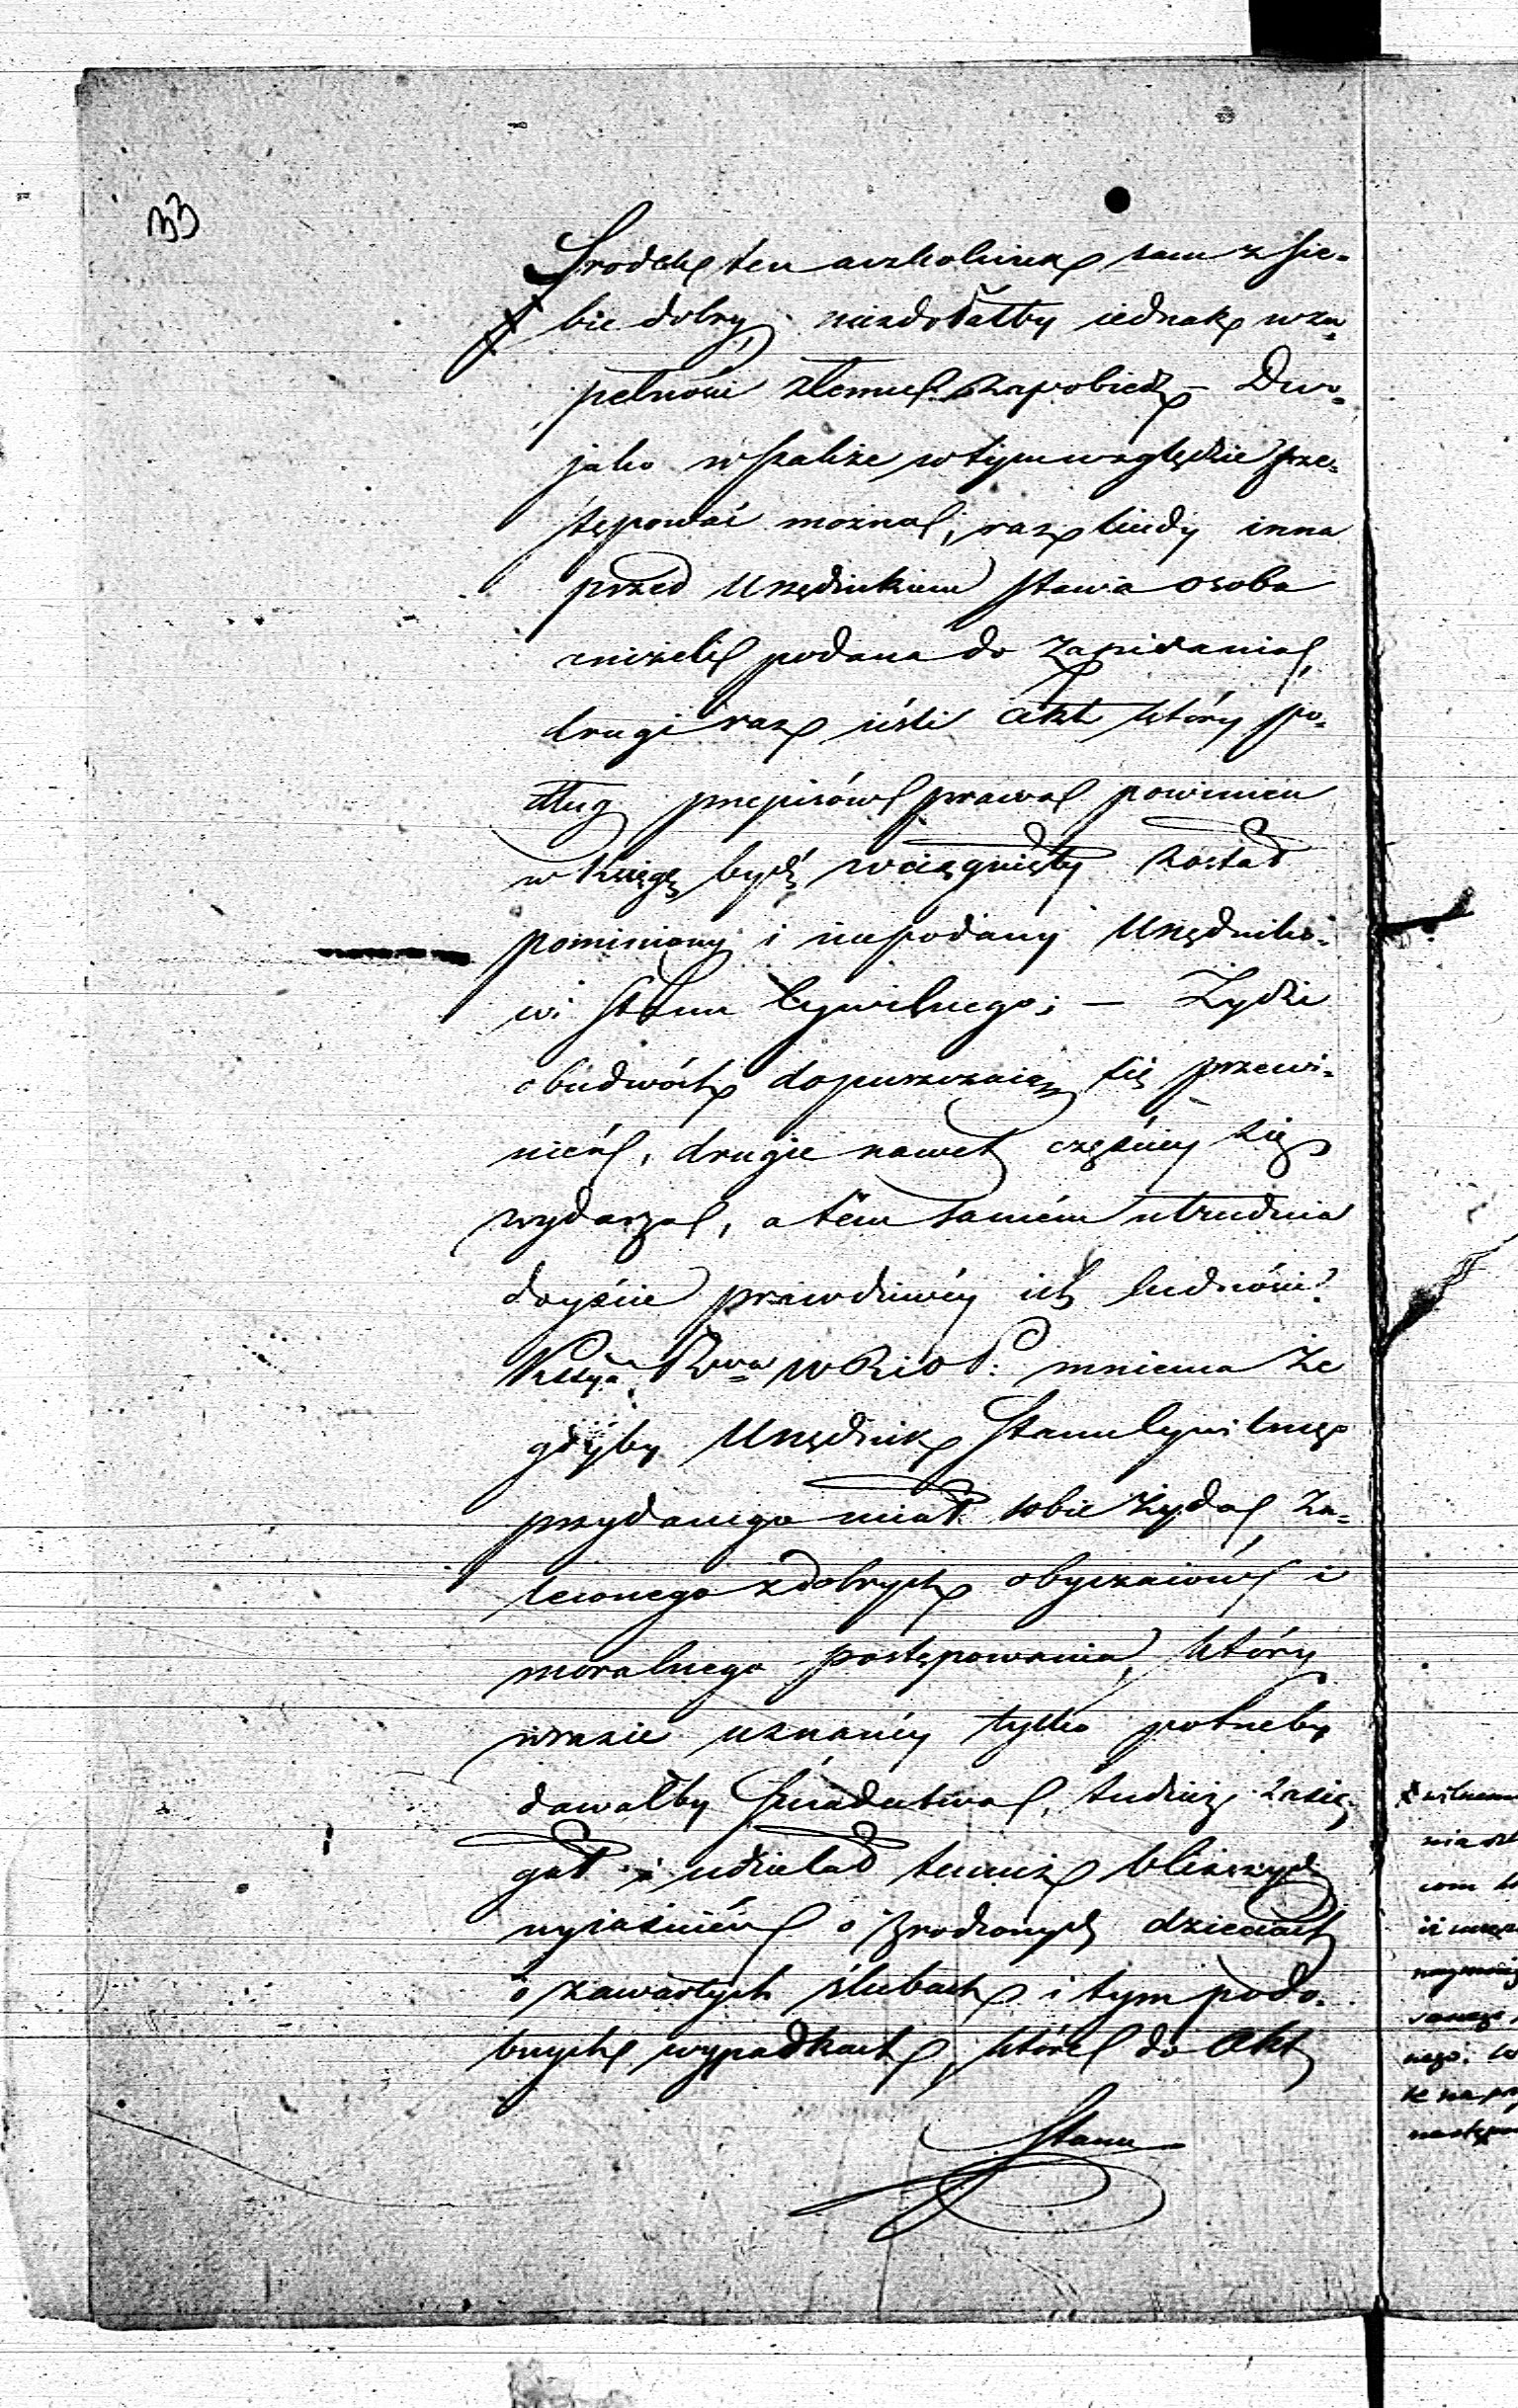 33
Srodek ten aczkolwiek sam z sie-
bie dobry, niezdołałby iednak w zu-
pełności złemu zapobiedz – Dwo-
jako wszakże w tym względzie prze-
stępować można, raz kiedy inna
przed Urzędnikiem stawa osoba
aniżeli podana do zapisania,
drugi raz ieśli akt który po-
dług przepisów prawa powinien
w księgę bydź wciągnięty został
pominiony i niepodany Urzędniko-
wi Stanu Cywilnego; – Żydzi
obudwóch dopuszczaią się przewi-
nień, drugie nawet częściey się
wydarza, a tém samém utrudnia
doyście prawdziwéy ich ludności.
Kssya Rwa W R i O P. mniema że
gdyby Urzędnik Stanu Cywilnego
przydanego miał sobie Żyda, za-
leconego z dobrych obyczaiów i
moralnego postępowania, który
w razie uznanéy tylko potrzeby
dawałby świadectwa, tudzież zasię-
gał i udzielał temuż bliższych
wyiaśnień o zrodzonych dzieciach
o zawartych ślubach i tym podo-
bnych wypadkach, które do Akt
Stanu